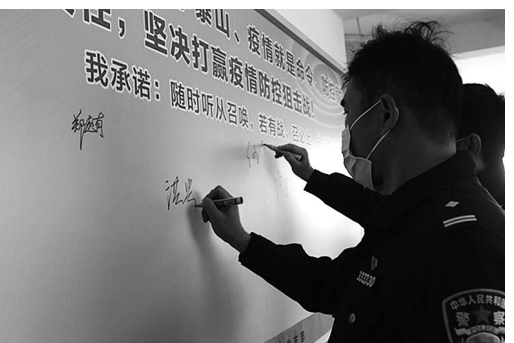 泰山、疫情就是命令、防控
任，坚决打赢疫情防控狙击战！
我承诺：随时听从召唤，若有战、召必
何
洪
中华人民共和
警 察